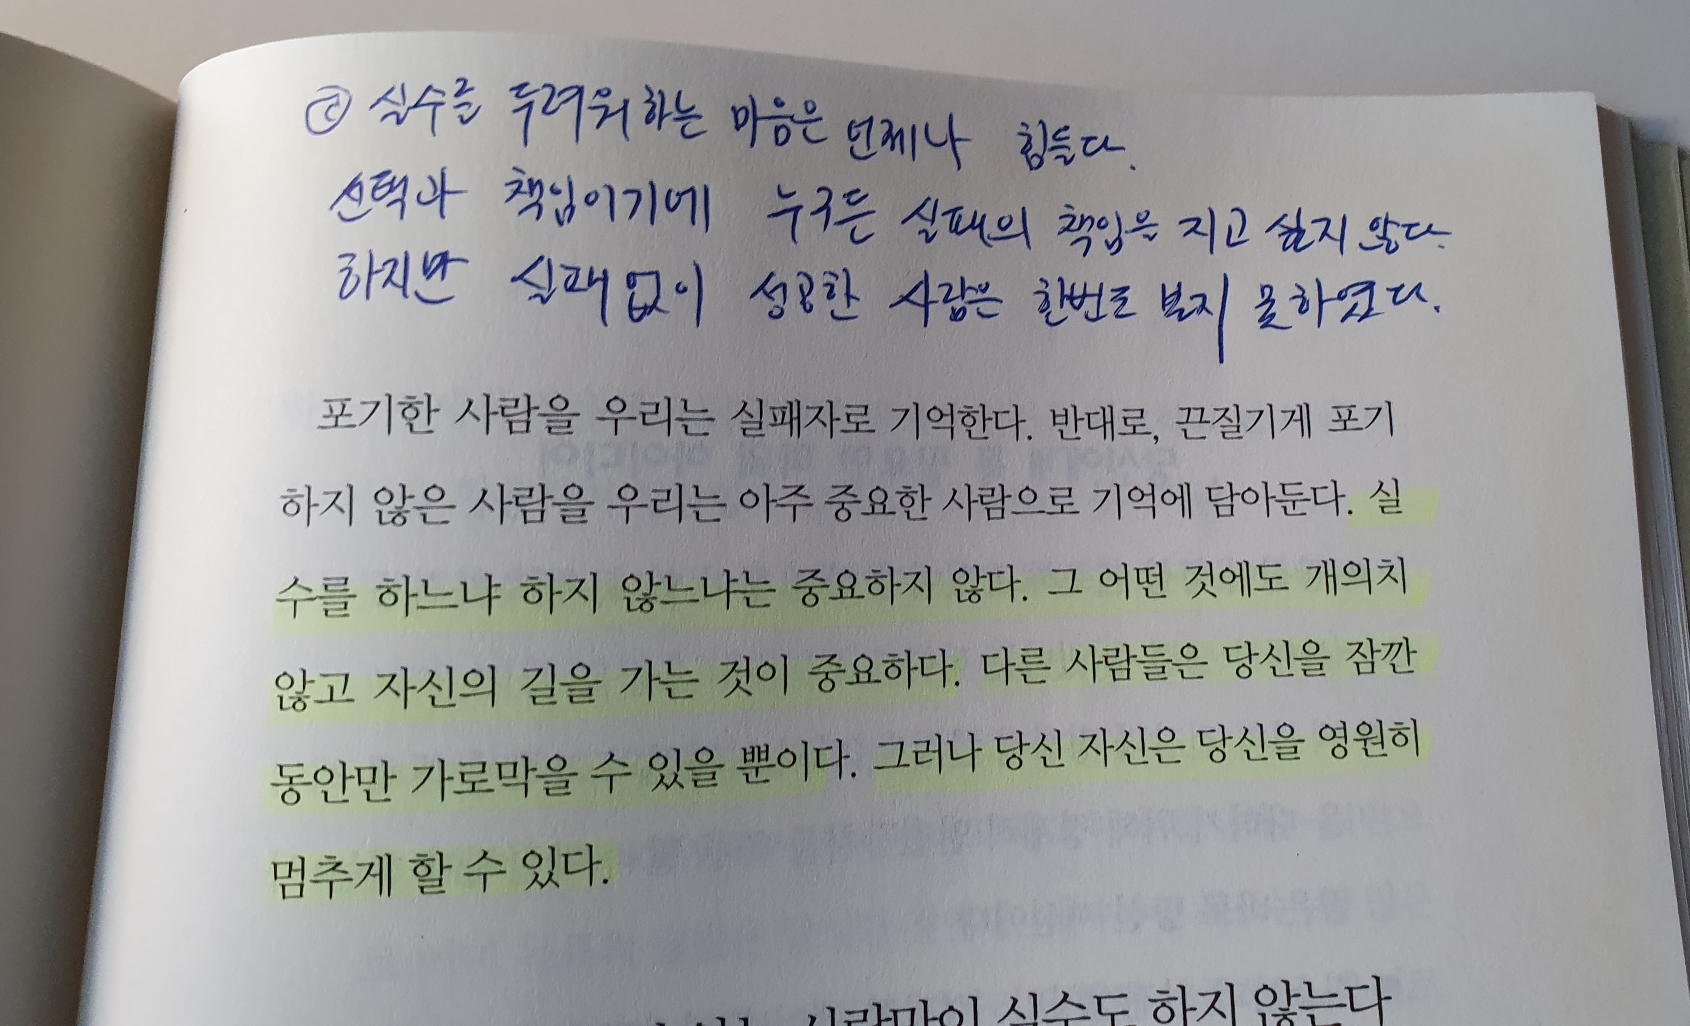 실수를 두려워하는 마음은 언제나 힘들다.
선택과 책임이기에 누구든 실패의 책임을 지고 싶지 않다.
하지만 실패없이 성공한 사람은 한번도 보지 못하였다.
포기한 사람을 우리는 실패자로 기억한다. 반대로, 끈질기게 포기
하지 않은 사람을 우리는 아주 중요한 사람으로 기억에 담아둔다. 실
수를 하느냐 하지 않느냐는 중요하지 않다. 그 어떤 것에도 개의치
않고 자신의 길을 가는 것이 중요하다. 다른 사람들은 당신을 잠깐
동안만 가로막을 수 있을 뿐이다. 그러나 당신 자신은 당신을 영원히
멈추게 할 수 있다.
사람만이 실수도 하지 않는다